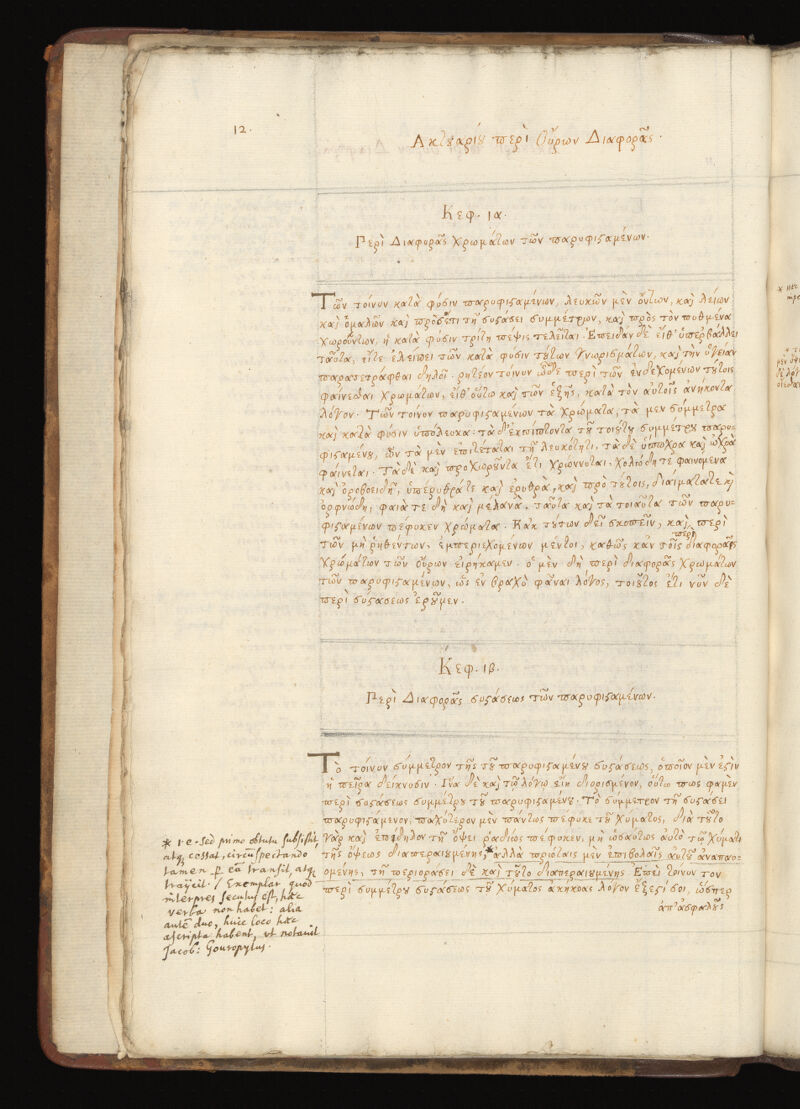 12.
Ακτȣαρίȣ περὶ Οὔρων Διαφορᾶς.
Κεφ. ια.
Περὶ Διαφορᾶς χρωμάτων τῶν παρυφιςαμένων.
Τῶν τοίνυν κατὰ φύσιν παρυφιςαμένων, λευκῶν μὲν ὄντων, καὶ λείων
καὶ ὁμαλῶν καὶ προσέτι τῇ συςάσει συμμέτρων, καὶ πρὸς τὸν πυθμένα
χωρούντων, ἡ κατὰ φύσιν τρίτη πέψις τελεῖται. Ἐπειδὰν δὲ εἴθ' ὑπερβάλλει
ταῦτα, εἴτε ἐλείπει τῶν κατὰ φύσιν τȣτων γνωρισμάτων, καὶ τὴν ὑγείαν
παρατετράφθαι δηλοῖ. ρητέον τοίνυν ὧδε περὶ τῶν ἐνδεχομένων τȣτοις
φαίνεσθαι χρωμάτων, εἶθ' οὕτω καὶ τῶν ἑξῆς, κατὰ τὸν αὐτοῖς ἀνήκοντα
λόγον. Τῶν τοίνυν παρυφιςαμένων τὰ χρώματα, τὰ μεν σύμμετρα
καὶ κατὰ φύσιν ὑπόλευκα. τὰ δ' ἐκπίπτοντα τȣ τοιȣτȣ συμμέτρȣ παρυ-
φιςαμένȣ, ὧν τὰ μὲν ἐπιτέταται τῇ λευκότητι, τὰ δὲ ὕπωχρα καὶ ὠχρὰ
φαίνεται. Τὰ δὲ καὶ προχωρȣντα ἔτι χρώννυται. χολώδη τε φαινόμενα
καὶ ὀροβοειδῆ, ὑπέρυθρά τε καὶ ἐρυθρὰ, καὶ πρὸ τȣτοις, διαίματά τε καὶ
ὀρφνώδη, φαιά τε δὴ καὶ μέλανα, ταῦτα καὶ τὰ τοιαῦτα τῶν παρυ-
φιςαμένων πέφυκεν χρώματα. Κἀκ τȣτων δεῖ σκοπεῖν, καὶ περὶ
τῶν μὴ ῥηθέντων, ἐμπεριεχομένων μέντοι, καθὼς κἀν τοῖς περὶ διαφορᾶς
χρωμάτων τῶν οὔρων εἰρήκαμεν. ὁ μὲν δὴ περὶ διαφορᾶς χρωμάτων
τῶν παρυφιςαμένων, ὡς ἐν βραχὺ φᾶναι λόγος, τοιȣτος ἔτι νῦν δὲ
περὶ συςάσεως ἐρȣμεν.
Κεφ. ιβ.
Περὶ Διαφορᾶς συςάσεως τῶν παρυφιςαμένων.
Τὸ τοίνυν σύμμετρον τῆς τȣ παρυφιςαμένȣ συςάσεως, ὁποῖον μὲν ἐςὶν
ἡ πεῖρα δείκνυσιν. ἵνα δὲ καὶ τῷ λόγῳ εἴη διορισμένον, οὕτω πως φαμὲν
περὶ συςάσεως συμμέτρȣ τȣ παρυφιςαμένȣ. Τὸ σύμμετρον τῇ συςάσει
παρυφιςαμένον, παχύτερον μὲν πάντως πέφυκε τȣ χύματος, διὰ τȣτο
γὰρ καὶ ἐπίδηλον τῇ ὄψει ῥαδίως πέφυκεν, μὴ ὡσαύτως αὐτὸ τῷ χύματι
τῆς ὄψεως διαπεραιȣμένης,* ἀλλὰ πρώταις μὲν ἐπιβολαῖς αὐτȣ ἀναπαυ-
ομένης, τῇ περιορασει δε καὶ τȣτο διαπεραιȣμενης Ἐπεὶ τοίνυν τὸν
περὶ συμμέτρȣ συςάσεως τȣ χύματος ἀκήκοας λόγον ἔξεςί σοι, ὥσπερ
ἀπ' ἀσφαλȣς
* i.e. sed primo obtutu subsistit,
atq, cessat, circũspectando
tamen p eũ transit, atq,
traijcit. / Exemplar quod
interpres secutus est, hæc
verba non habet: alia
autẽ duo, huic loco hæc
ascripta habent, vt notauit
Jacob: Goupylus.